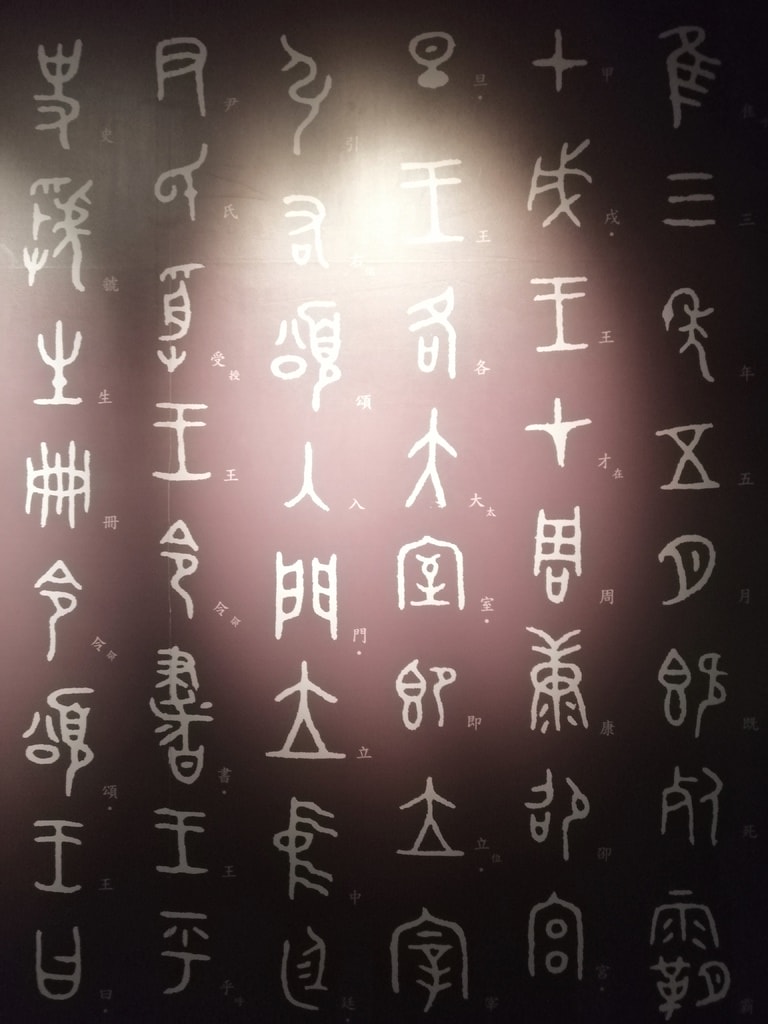 隹三年五月既死霸
甲戌。王才在周康卲宮。
旦。王各大太室。即立位。宰
引右頌入門。立中廷。
尹氏受授王令命書。王乎呼
史虢生冊令命頌。王曰。